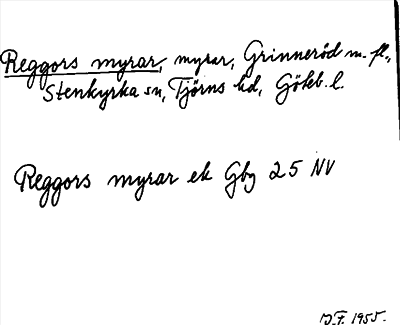 Reggors myrar, myrar, Grinneröd m. fl.,
Stenkyrka sn, Tjörns hd, Göteb. l.
Reggors myrar ek Gbg 25 NV
1955.